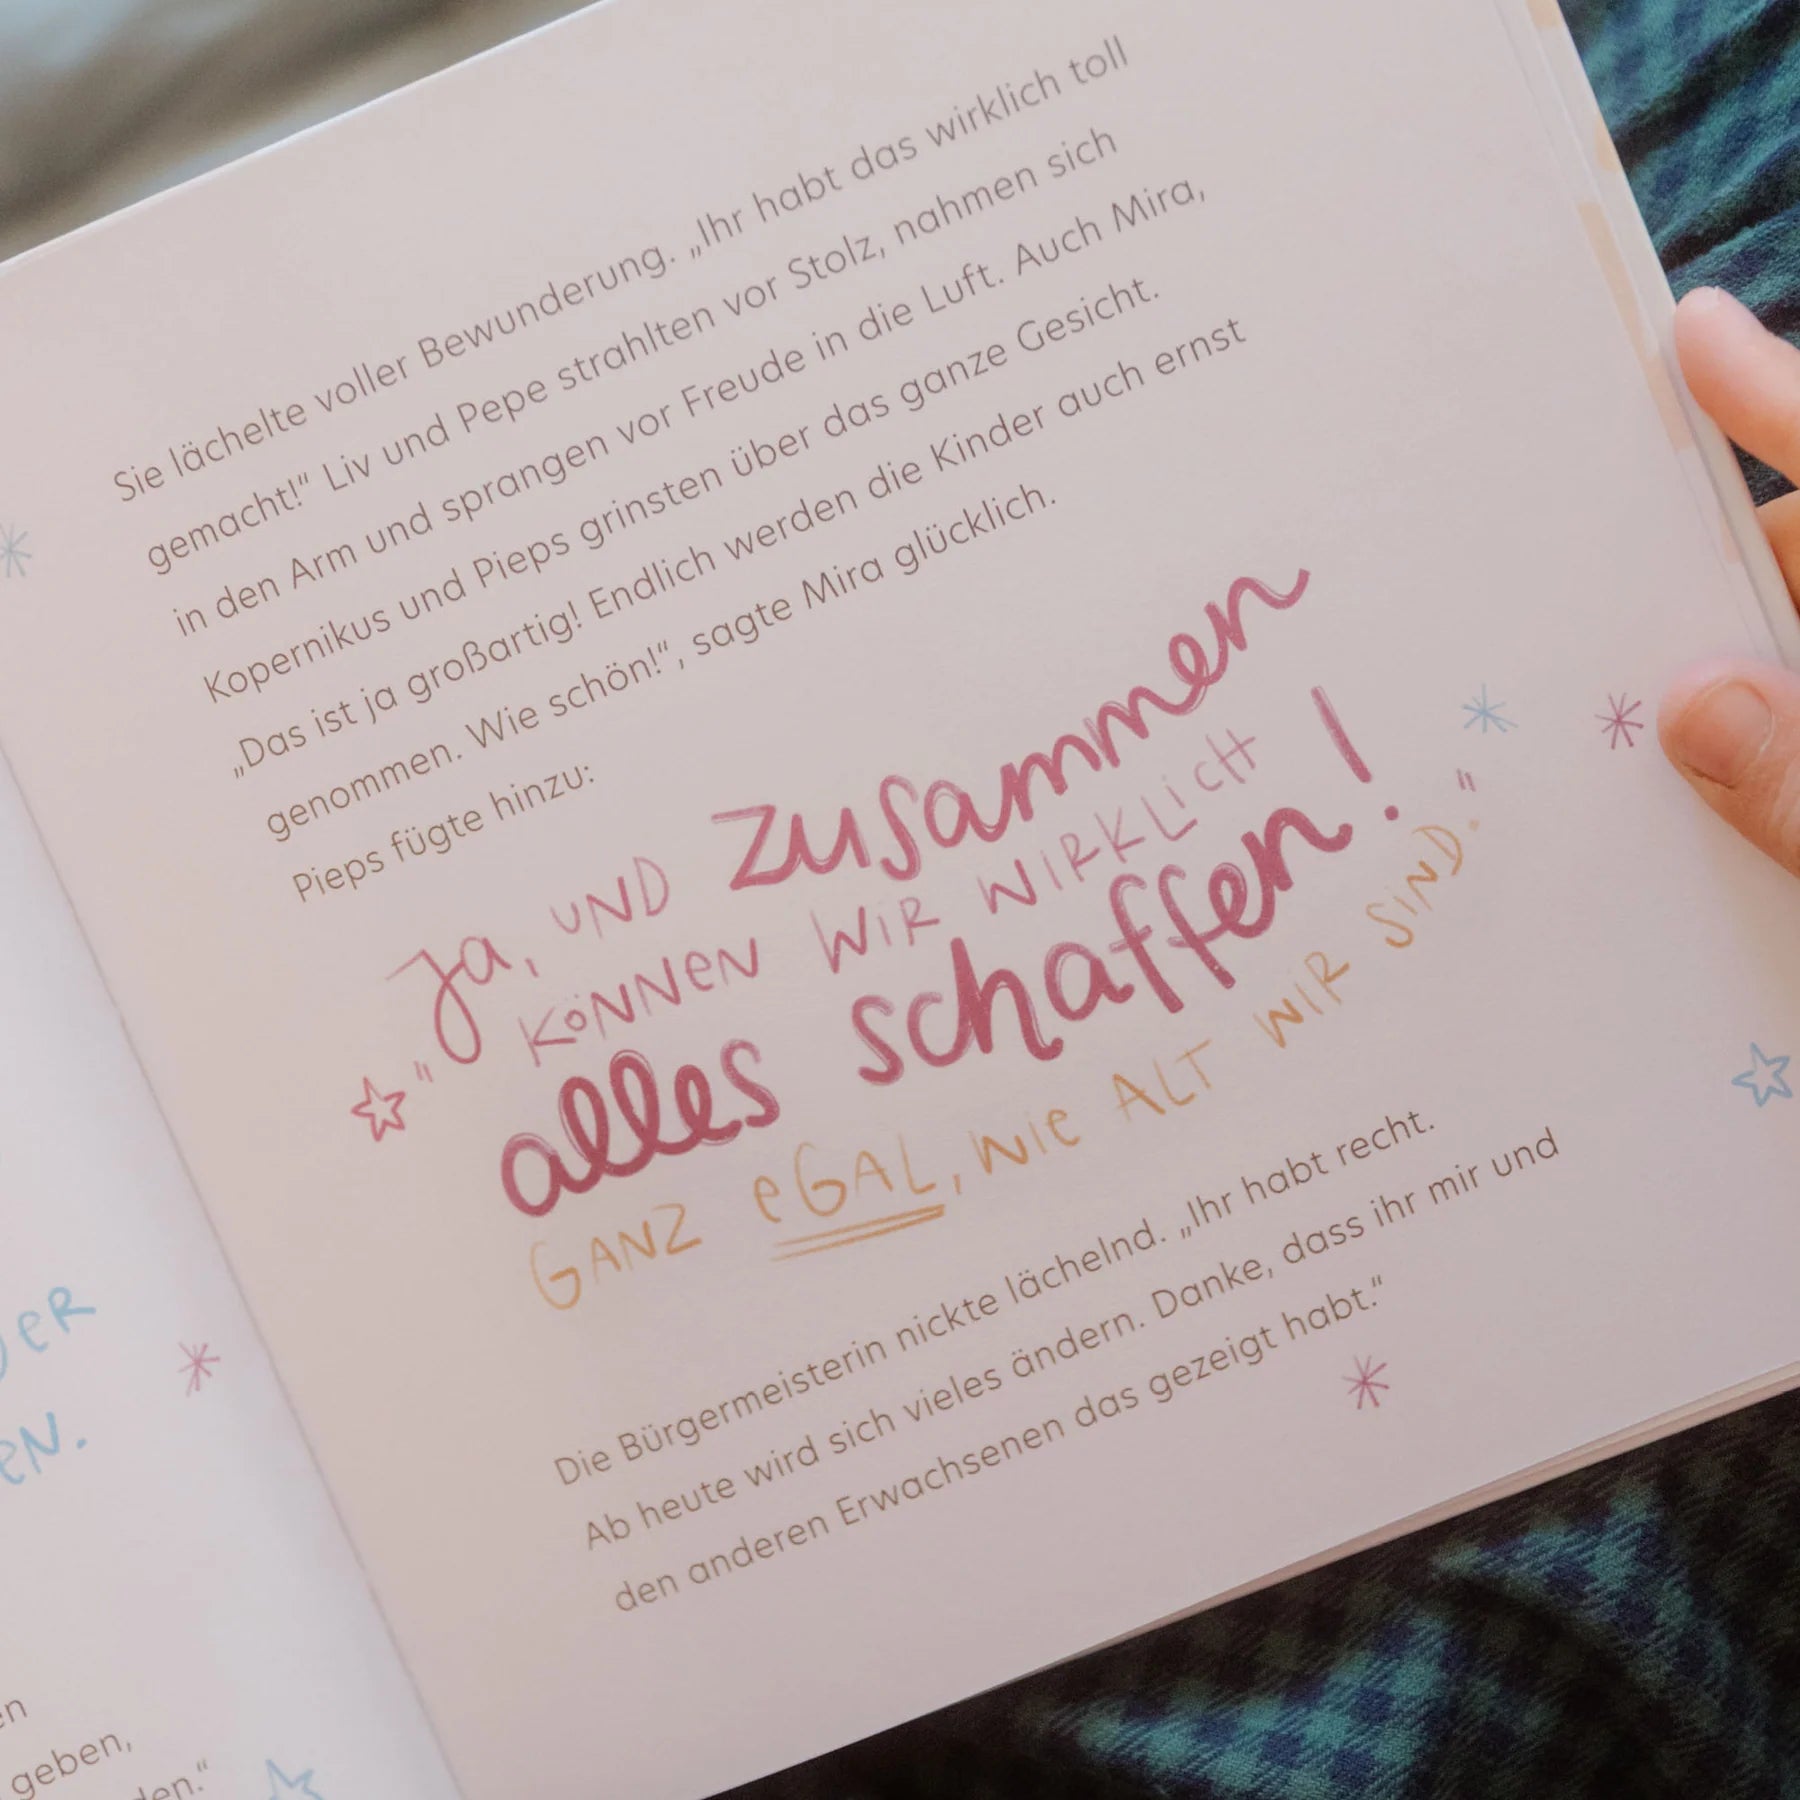 Sie lächelte voller Bewunderung. „Ihr habt das wirklich toll
gemacht!“ Liv und Pepe strahlten vor Stolz, nahmen sich
in den Arm und sprangen vor Freude in die Luft. Auch Mira,
Kopernikus und Pieps grinsten über das ganze Gesicht.
„Das ist ja großartig! Endlich werden die Kinder auch ernst
genommen. Wie schön!“, sagte Mira glücklich.
Pieps fügte hinzu:
"Ja, UND zusammen
KÖNNEN WIR WIRKLICH
alles schaffen!
GANZ EGAL, WIE ALT WIR SIND."
Die Bürgermeisterin nickte lächelnd. „Ihr habt recht.
Ab heute wird sich vieles ändern. Danke, dass ihr mir und
den anderen Erwachsenen das gezeigt habt.“
geben,